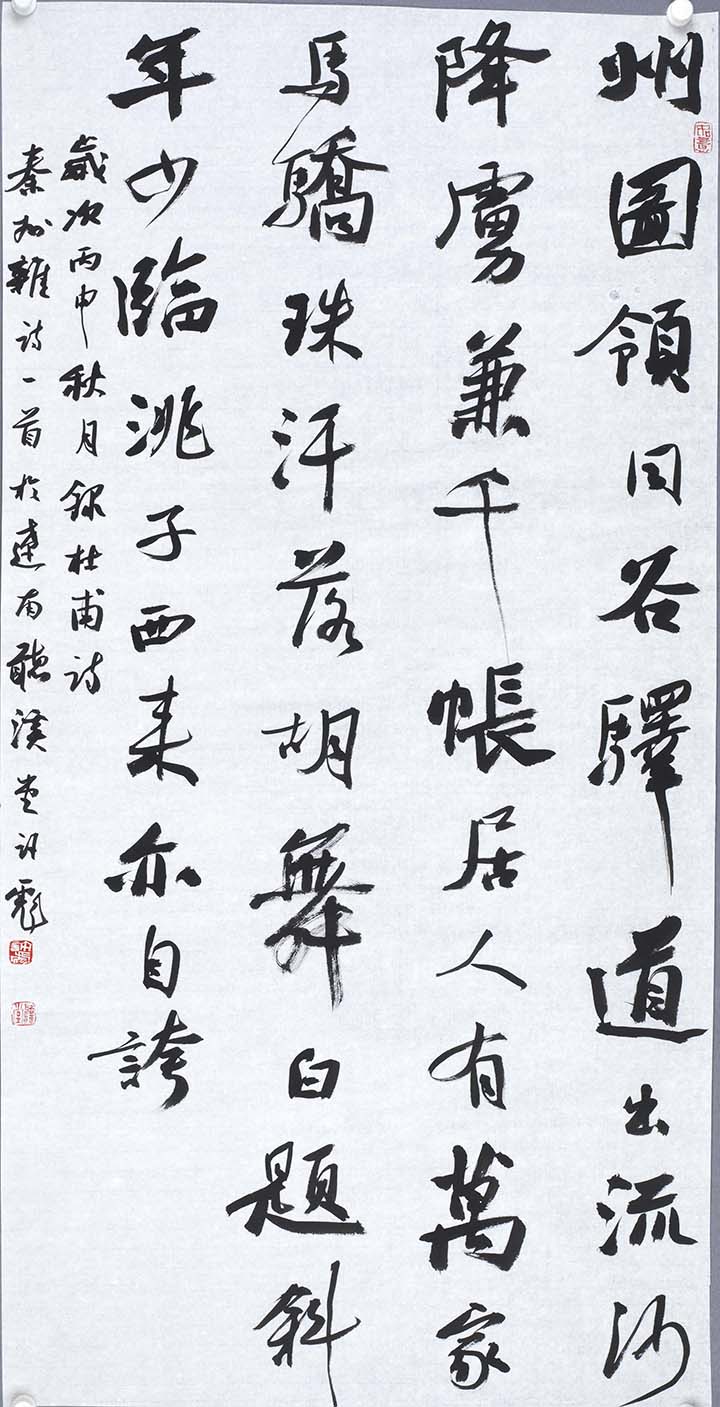 州圖領同谷驛道出流沙
降虜兼千帳居人有萬家
馬驕珠汗落胡舞白題斜
年少臨洮子西來亦自誇
歲次丙申秋月錄杜甫詩
秦州雜詩一首於連南聽溪堂